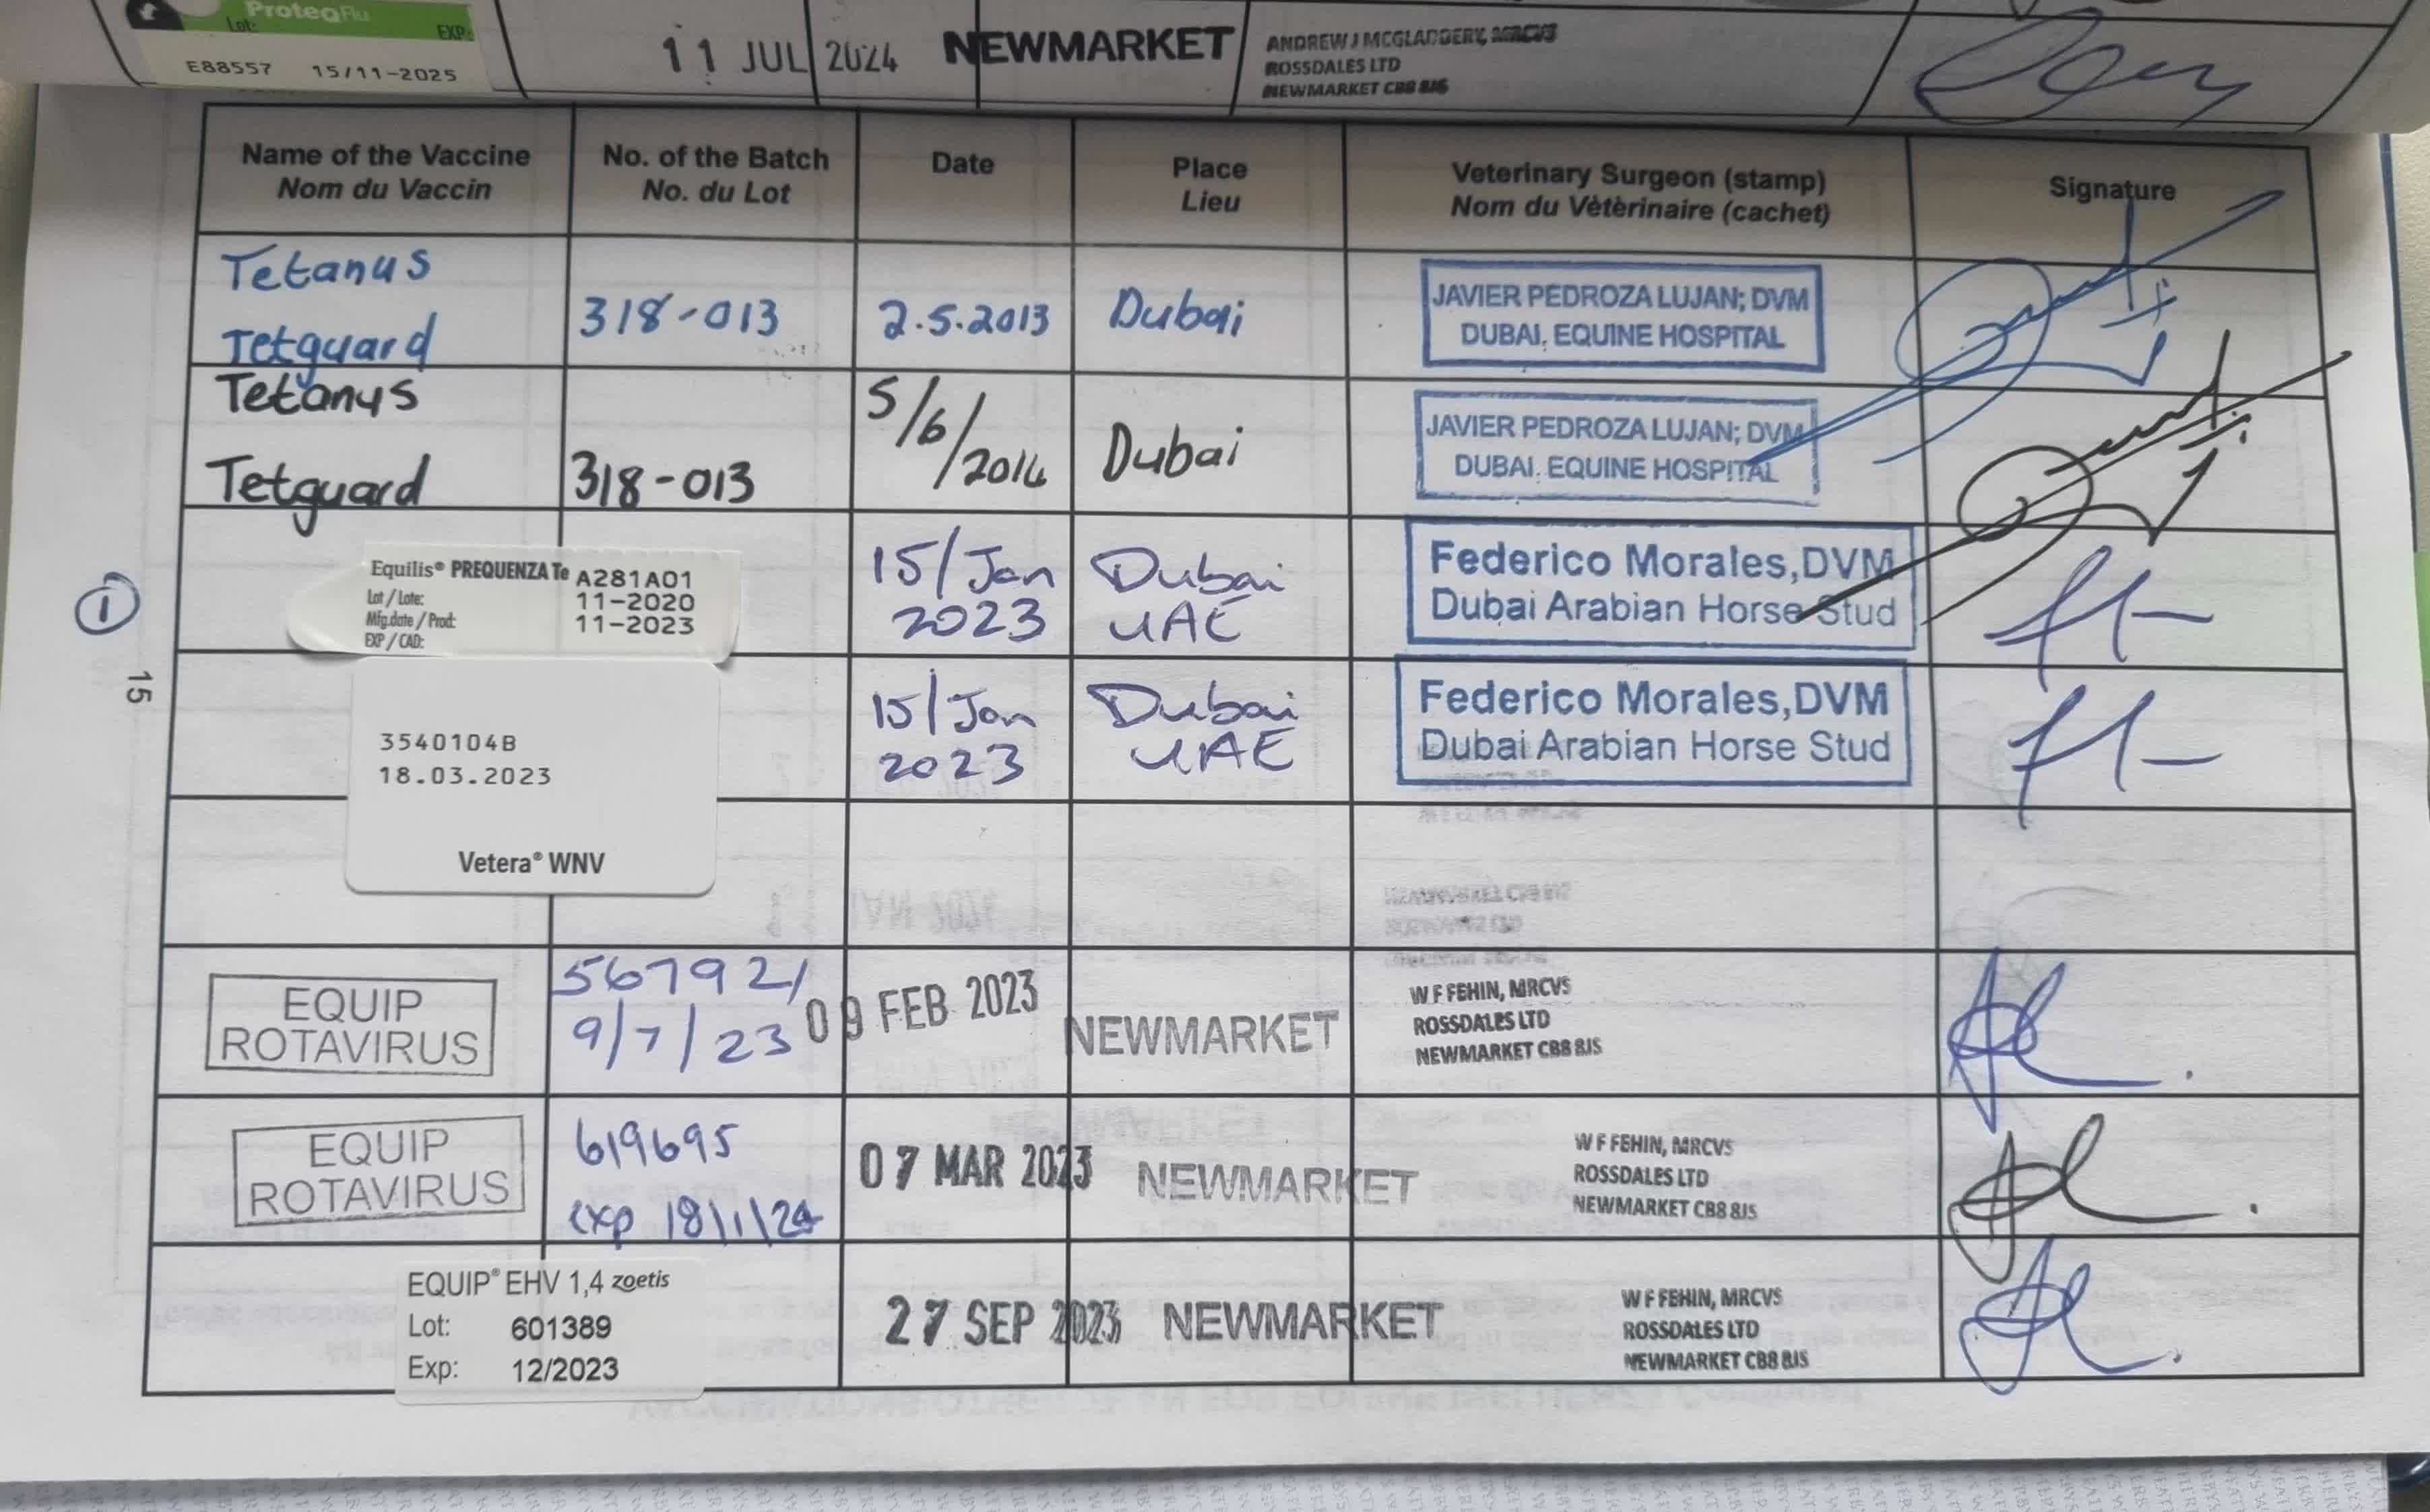 ProteqFlu
Lot: EXP:
E88557 15/11-2025
11 JUL 2024
NEWMARKET
ANDREW J MCGLADDERY, MRCVS
ROSSDALES LTD
NEWMARKET CB8 8JS
Name of the Vaccine
Nom du Vaccin
No. of the Batch
No. du Lot
Date
Place
Lieu
Veterinary Surgeon (stamp)
Nom du Vètèrinaire (cachet)
Signature
Tetanus
Tetguard
318-013
2.5.2013
Dubai
JAVIER PEDROZA LUJAN; DVM
DUBAI. EQUINE HOSPITAL
Tetanus
Tetguard
318-013
5/6/2014
Dubai
JAVIER PEDROZA LUJAN; DVM
DUBAI. EQUINE HOSPITAL
1
Equilis® PREQUENZA Te A281A01
Lot / Lote: 11-2020
Mfg.date / Prod: 11-2023
EXP / CAD:
15/Jan
2023
Dubai
UAE
Federico Morales,DVM
Dubai Arabian Horse Stud
15
3540104B
18.03.2023
Vetera® WNV
15/Jan
2023
Dubai
UAE
Federico Morales,DVM
Dubai Arabian Horse Stud
EQUIP
ROTAVIRUS
567921
9/7/23
09 FEB 2023
NEWMARKET
W F FEHIN, MRCVS
ROSSDALES LTD
NEWMARKET CB8 8JS
EQUIP
ROTAVIRUS
619695
exp 18/1/24
07 MAR 2023
NEWMARKET
W F FEHIN, MRCVS
ROSSDALES LTD
NEWMARKET CB8 8JS
EQUIP® EHV 1,4 zoetis
Lot: 601389
Exp: 12/2023
27 SEP 2023
NEWMARKET
W F FEHIN, MRCVS
ROSSDALES LTD
NEWMARKET CB8 8JS